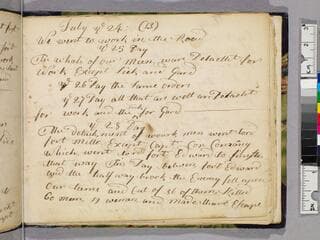 July ye 24. (13)
We went to work in the Road
ye 25 Day
The whole of our men warr Detachet for
Work Except Sick and Gard
ye 26 Day the same orders
ye 27 Day all that as well are Detachet
for work and the for Gard
ye 28 Day
The detachment of workmen went tord
fort Mille Except Capt Company
which went tord fort Edward to finish
that way this Day between fort Edward
and the half way brook the Enemy fell upon
Our teams and Cut of 36 of them Killed
60 men 11 women and made their Escape